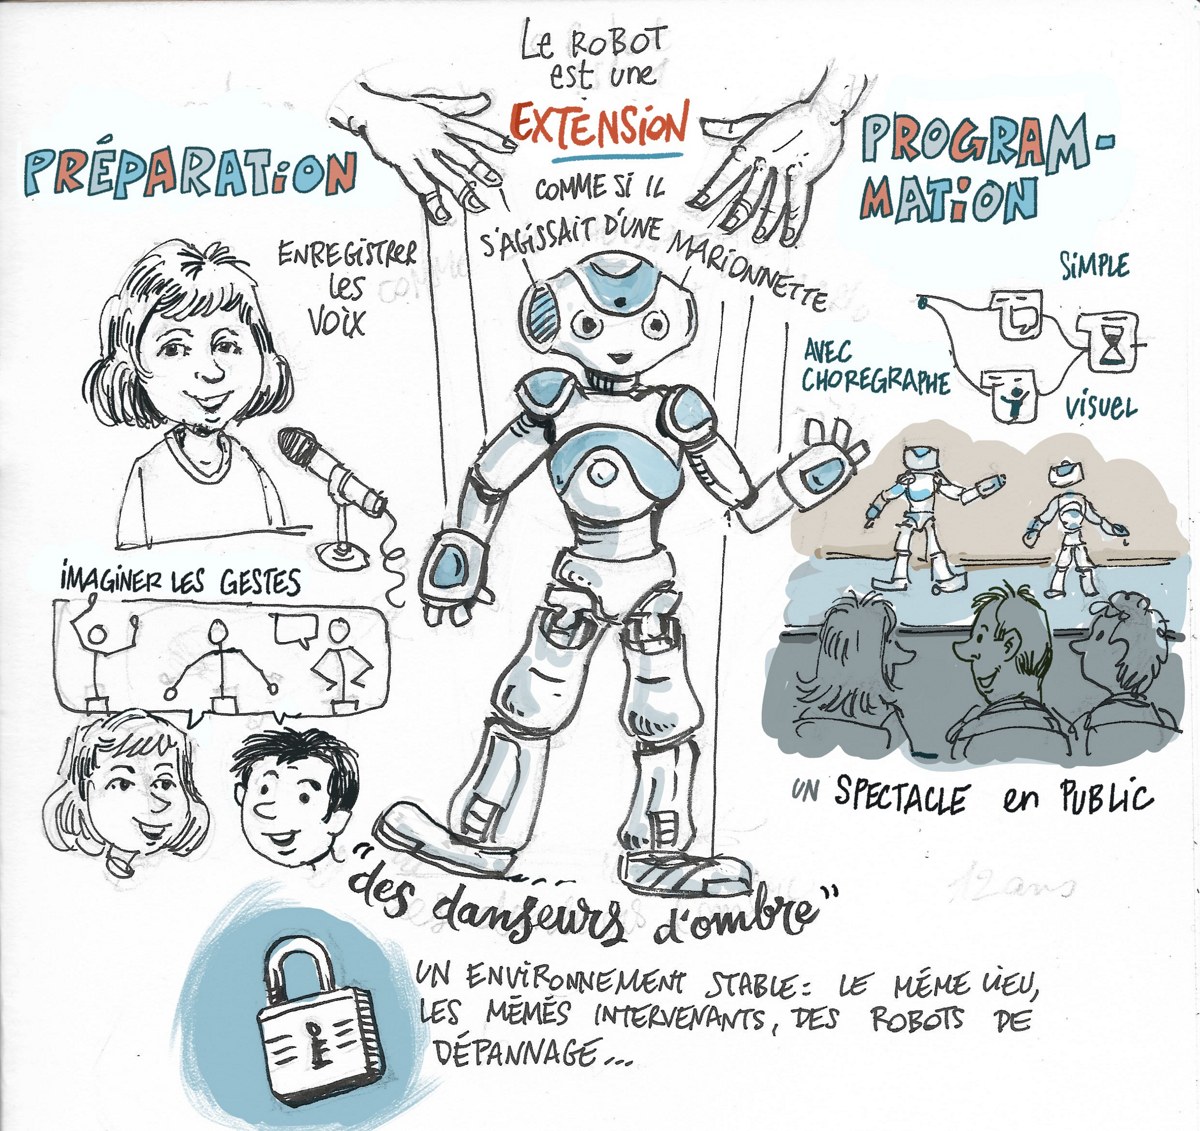 LE ROBOT
est une
EXTENSION
COMME SI IL
S'AGISSAIT D'UNE MARIONNETTE
PRÉPARATION
ENREGISTRER
LES
VOIX
IMAGINER LES GESTES
PROGRAM-
MATION
SIMPLE
AVEC
CHOREGRAPHE
VISUEL
UN SPECTACLE en PUBLIC
"des danseurs d'ombre"
12 ans
UN ENVIRONNEMENT STABLE : LE MÊME LIEU,
LES MÊMÉS INTERVENANTS, DES ROBOTS DE
DÉPANNAGE...